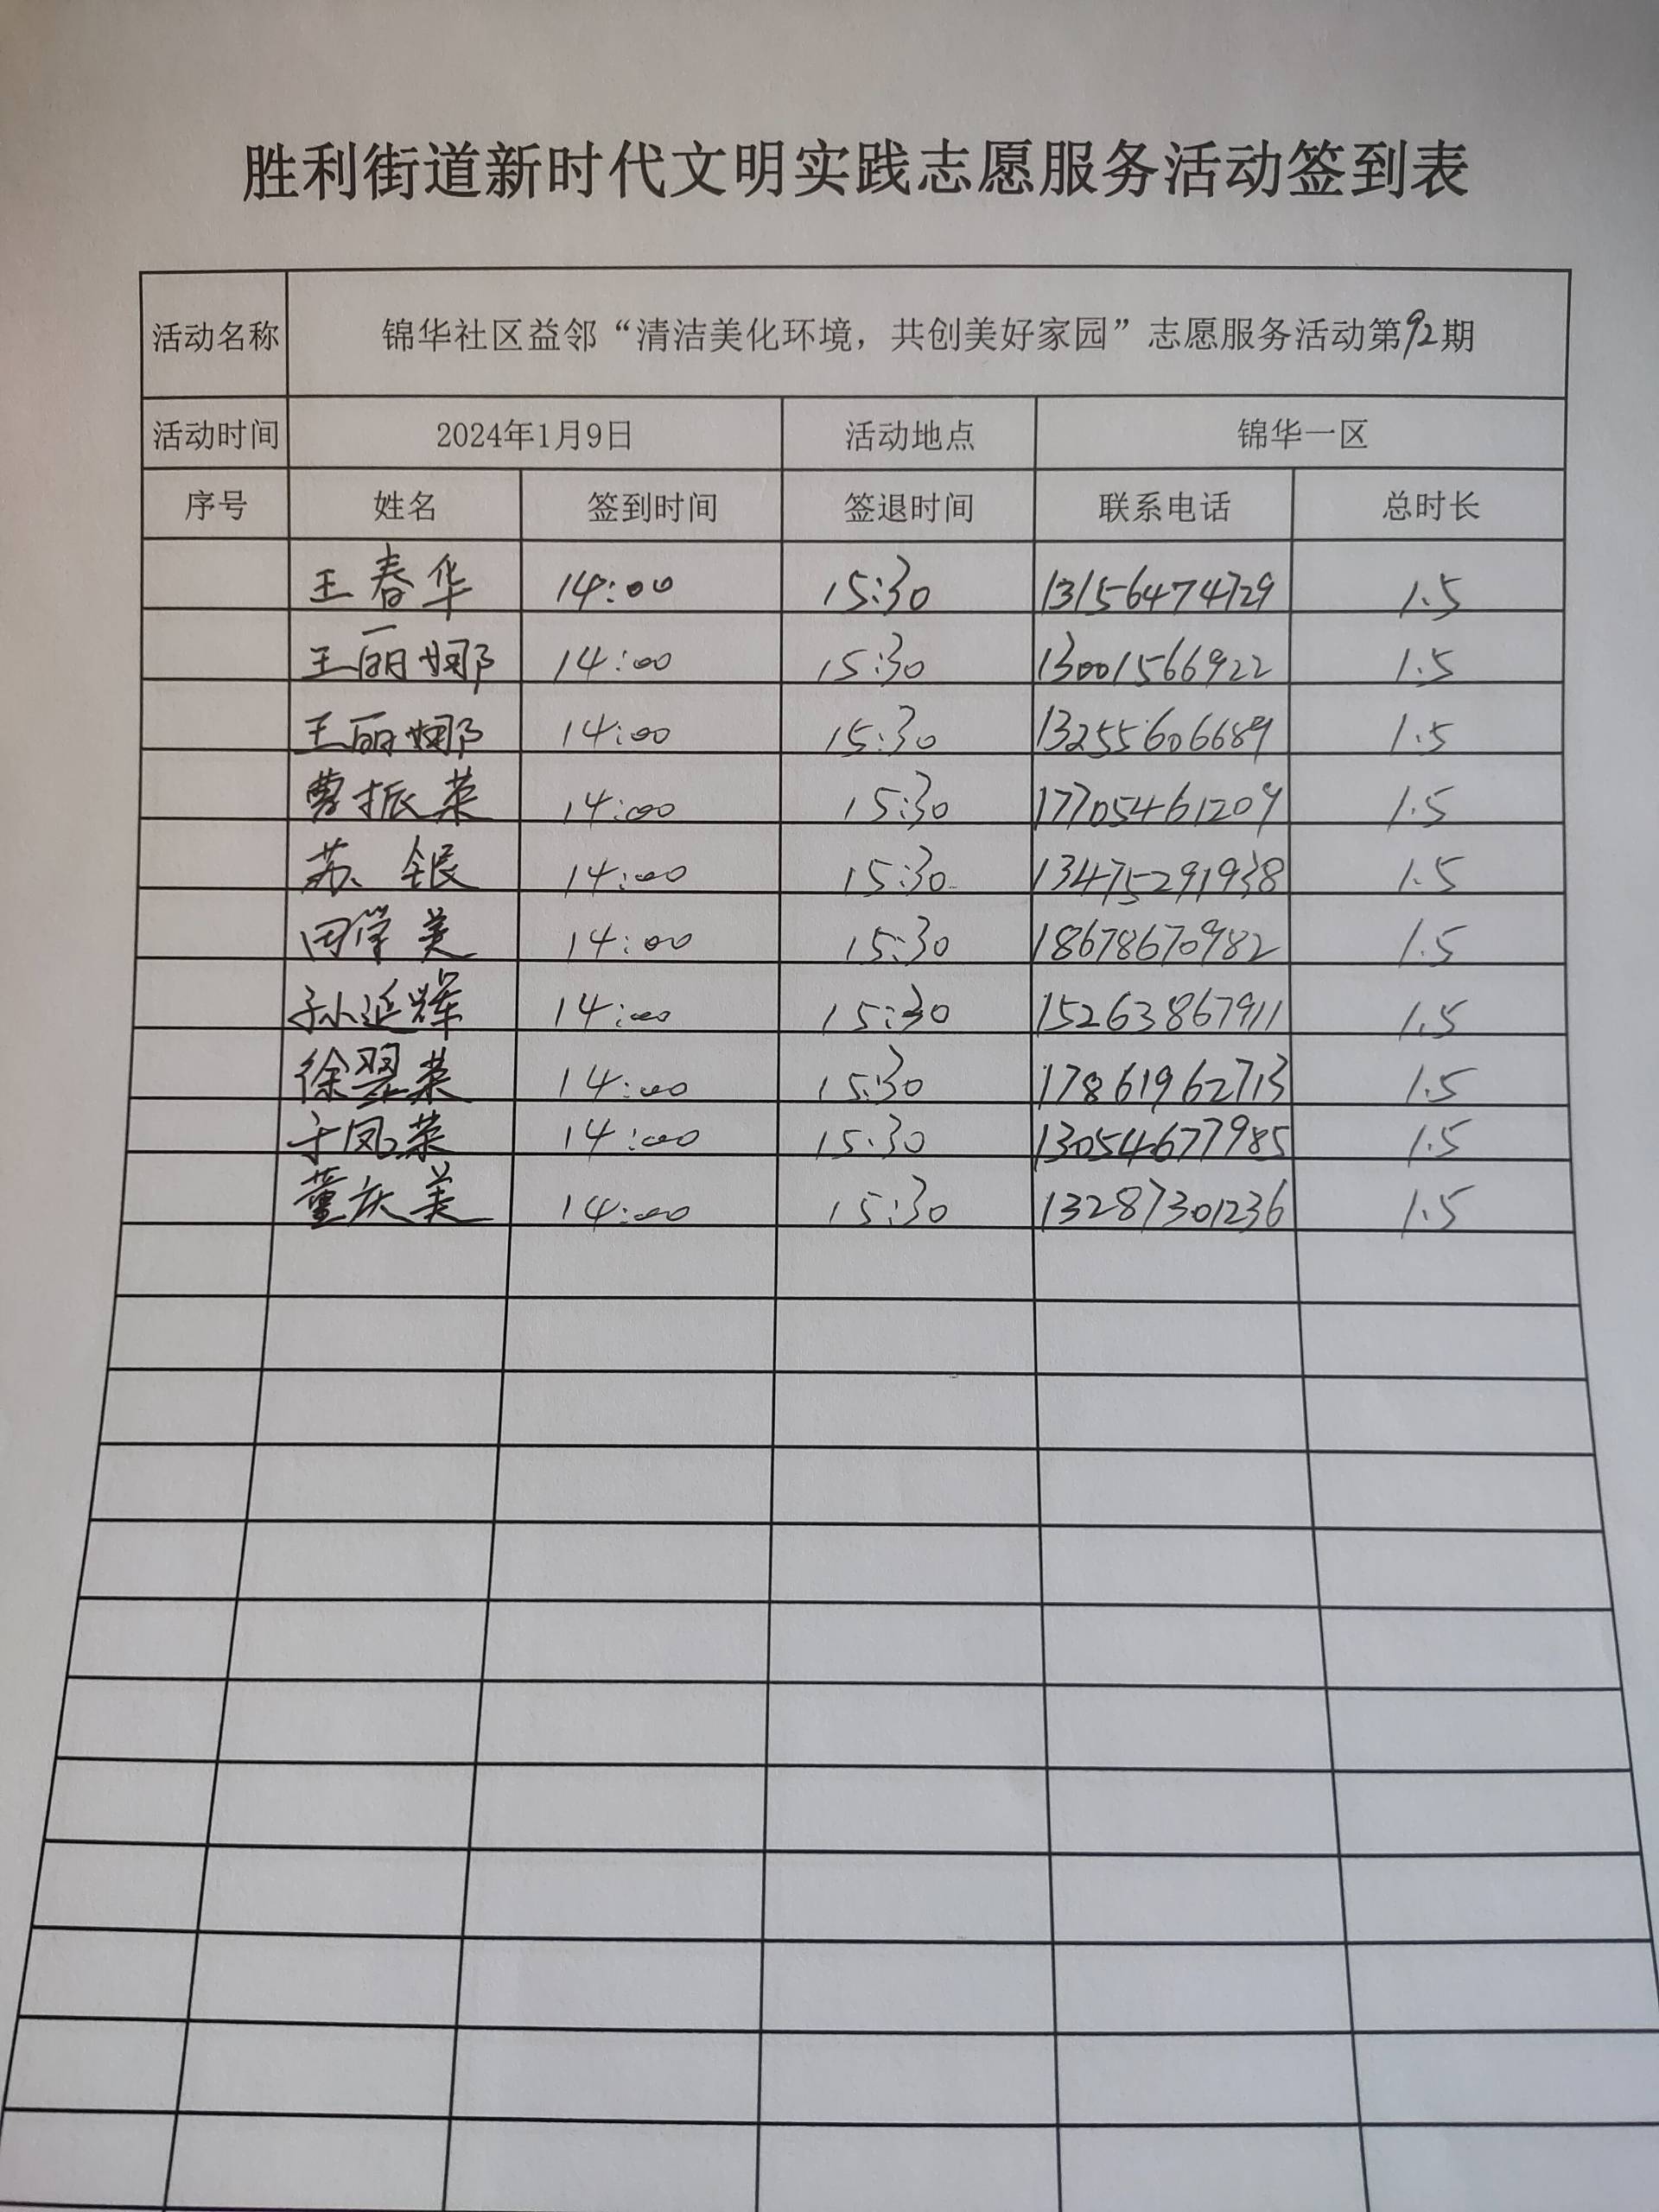 胜利街道新时代文明实践志愿服务活动签到表
活动名称 锦华社区益邻“清洁美化环境，共创美好家园”志愿服务活动第92期
活动时间 2024年1月9日 活动地点 锦华一区
序号 姓名 签到时间 签退时间 联系电话 总时长
王春华 14:00 15:30 13156474729 1.5
王丽娜 14:00 15:30 13001566922 1.5
王丽娜 14:00 15:30 13255606689 1.5
曹振荣 14:00 15:30 17705461209 1.5
苏银 14:00 15:30 13475291938 1.5
田学美 14:00 15:30 18678670982 1.5
孙延辉 14:00 15:30 15263867911 1.5
徐翠荣 14:00 15:30 17861962713 1.5
于凤荣 14:00 15:30 13054677985 1.5
董庆美 14:00 15:30 13287301236 1.5